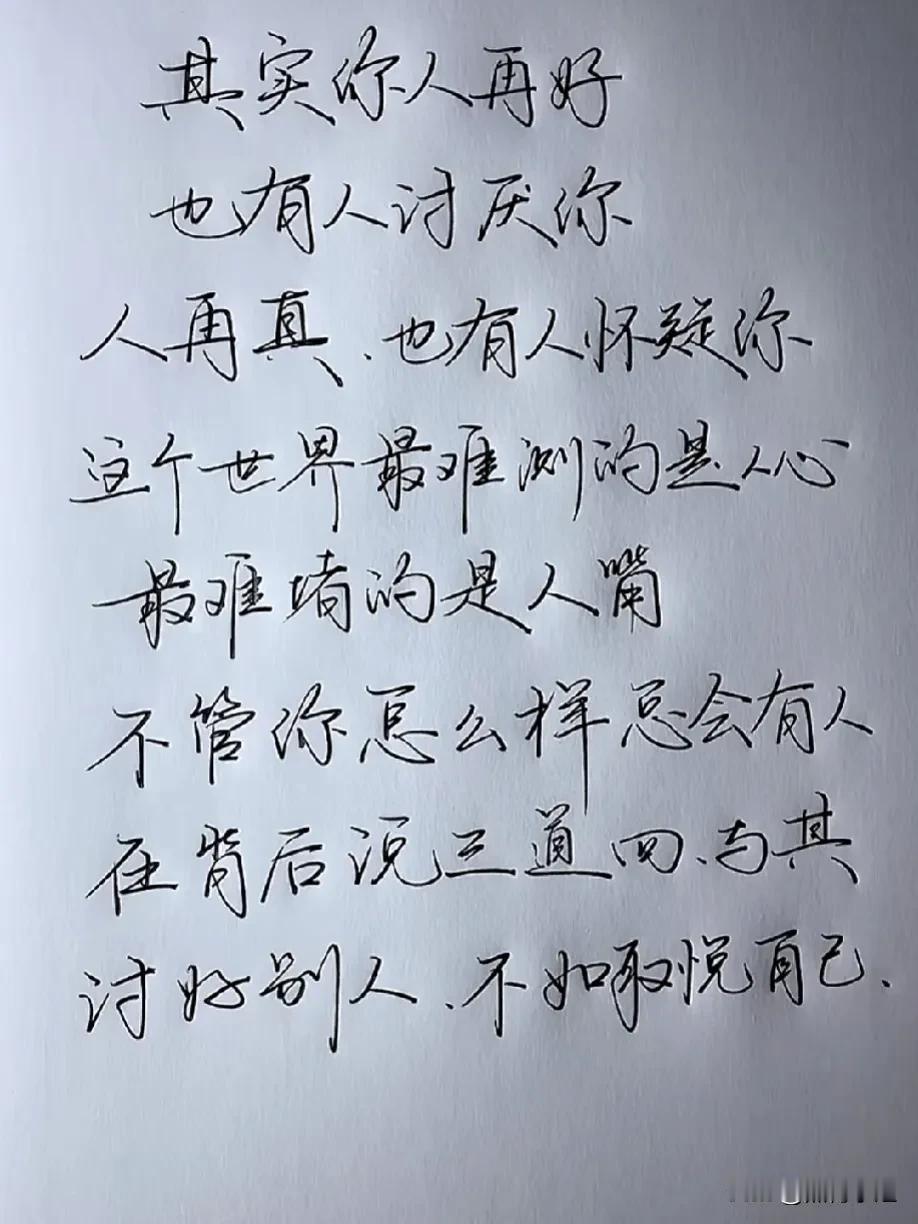 其实你人再好
也有人讨厌你
人再真、也有人怀疑你
这个世界最难测的是人心
最难堵的是人嘴
不管你怎么样总会有人
在背后说三道四、与其
讨好别人、不如取悦自己.